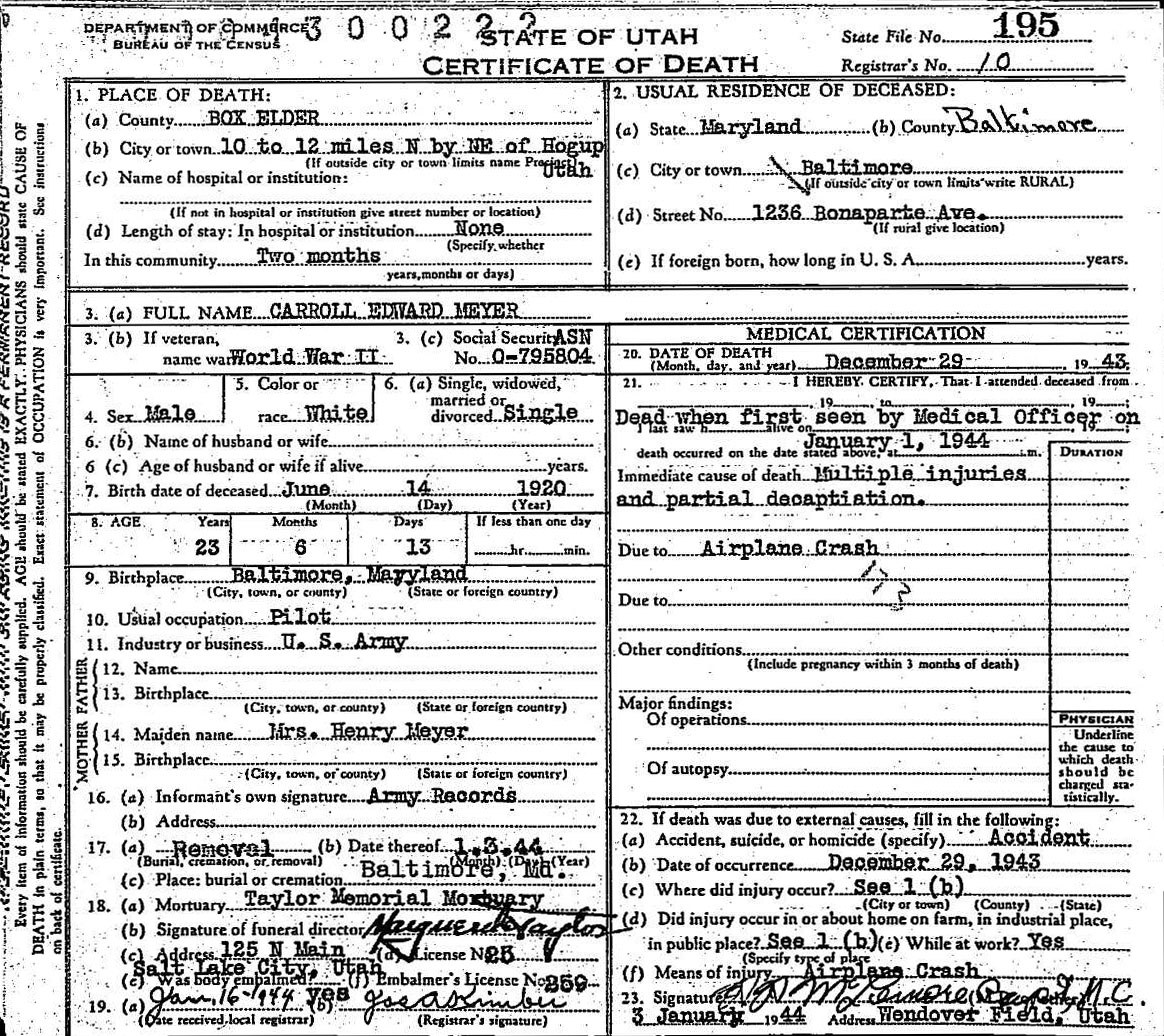 DEPARTMENT OF COMMERCE 3 0 0 2 2 2
BUREAU OF THE CENSUS
STATE OF UTAH
CERTIFICATE OF DEATH
State File No. 195
Registrar's No. 10
1. PLACE OF DEATH:
(a) County BOX ELDER
(b) City or town 10 to 12 miles N by NE of Hogup
(If outside city or town limits name Precinct) Utah
(c) Name of hospital or institution:
(If not in hospital or institution give street number or location)
(d) Length of stay: In hospital or institution None
(Specify whether
In this community Two months
years, months or days)
2. USUAL RESIDENCE OF DECEASED:
(a) State Maryland (b) County Baltimore
(c) City or town Baltimore
(If outside city or town limits write RURAL)
(d) Street No. 1236 Bonaparte Ave.
(If rural give location)
(e) If foreign born, how long in U. S. A. years.
3. (a) FULL NAME CARROLL EDWARD MEYER
3. (b) If veteran,
name war World War II
3. (c) Social Security ASN
No. O-795804
4. Sex Male
5. Color or
race White
6. (a) Single, widowed,
married or
divorced Single
6. (b) Name of husband or wife
6 (c) Age of husband or wife if alive years.
7. Birth date of deceased June 14 1920
(Month) (Day) (Year)
8. AGE Years Months Days If less than one day
23 6 13 hr. min.
9. Birthplace Baltimore, Maryland
(City, town, or county) (State or foreign country)
10. Usual occupation Pilot
11. Industry or business U. S. Army
FATHER
12. Name
13. Birthplace
(City, town, or county) (State or foreign country)
MOTHER
14. Maiden name Mrs. Henry Meyer
15. Birthplace
(City, town, or county) (State or foreign country)
16. (a) Informant's own signature Army Records
(b) Address
17. (a) Removal (b) Date thereof 1.3.44
(Burial, cremation, or removal) (Month) (Day) (Year)
(c) Place: burial or cremation Baltimore, Md.
18. (a) Mortuary Taylor Memorial Mortuary
(b) Signature of funeral director Marguerite Taylor
(c) Address 125 N Main (d) License No. 25
Salt Lake City, Utah
(e) Was body embalmed? yes (f) Embalmer's License No. 259
19. (a) Jan, 16-1944 (b) Jos A Kimber
(Date received local registrar) (Registrar's signature)
MEDICAL CERTIFICATION
20. DATE OF DEATH
(Month, day, and year) December 29, 1943
21. I HEREBY CERTIFY, That I attended deceased from
19 to 19 ;
Dead when first seen by Medical Officer on
I last saw h alive on 19 ;
January 1, 1944
death occurred on the date stated above, at m.
DURATION
Immediate cause of death Multiple injuries
and partial decaptiation.
Due to Airplane Crash
173
Due to
Other conditions
(Include pregnancy within 3 months of death)
Major findings:
Of operations
Of autopsy
PHYSICIAN
Underline
the cause to
which death
should be
charged sta-
tistically.
22. If death was due to external causes, fill in the following:
(a) Accident, suicide, or homicide (specify) Accident
(b) Date of occurrence December 29, 1943
(c) Where did injury occur? See 1 (b)
(City or town) (County) (State)
(d) Did injury occur in or about home on farm, in industrial place,
in public place? See 1 (b) (e) While at work? Yes
(Specify type of place
(f) Means of injury Airplane Crash
23. Signature M.C.
3 January 1944 Address Wendover Field, Utah
Every item of information should be carefully supplied. AGE should be stated EXACTLY. PHYSICIANS should state CAUSE OF
DEATH in plain terms, so that it may be properly classified. Exact statement of OCCUPATION is very important. See instructions
on back of certificate.